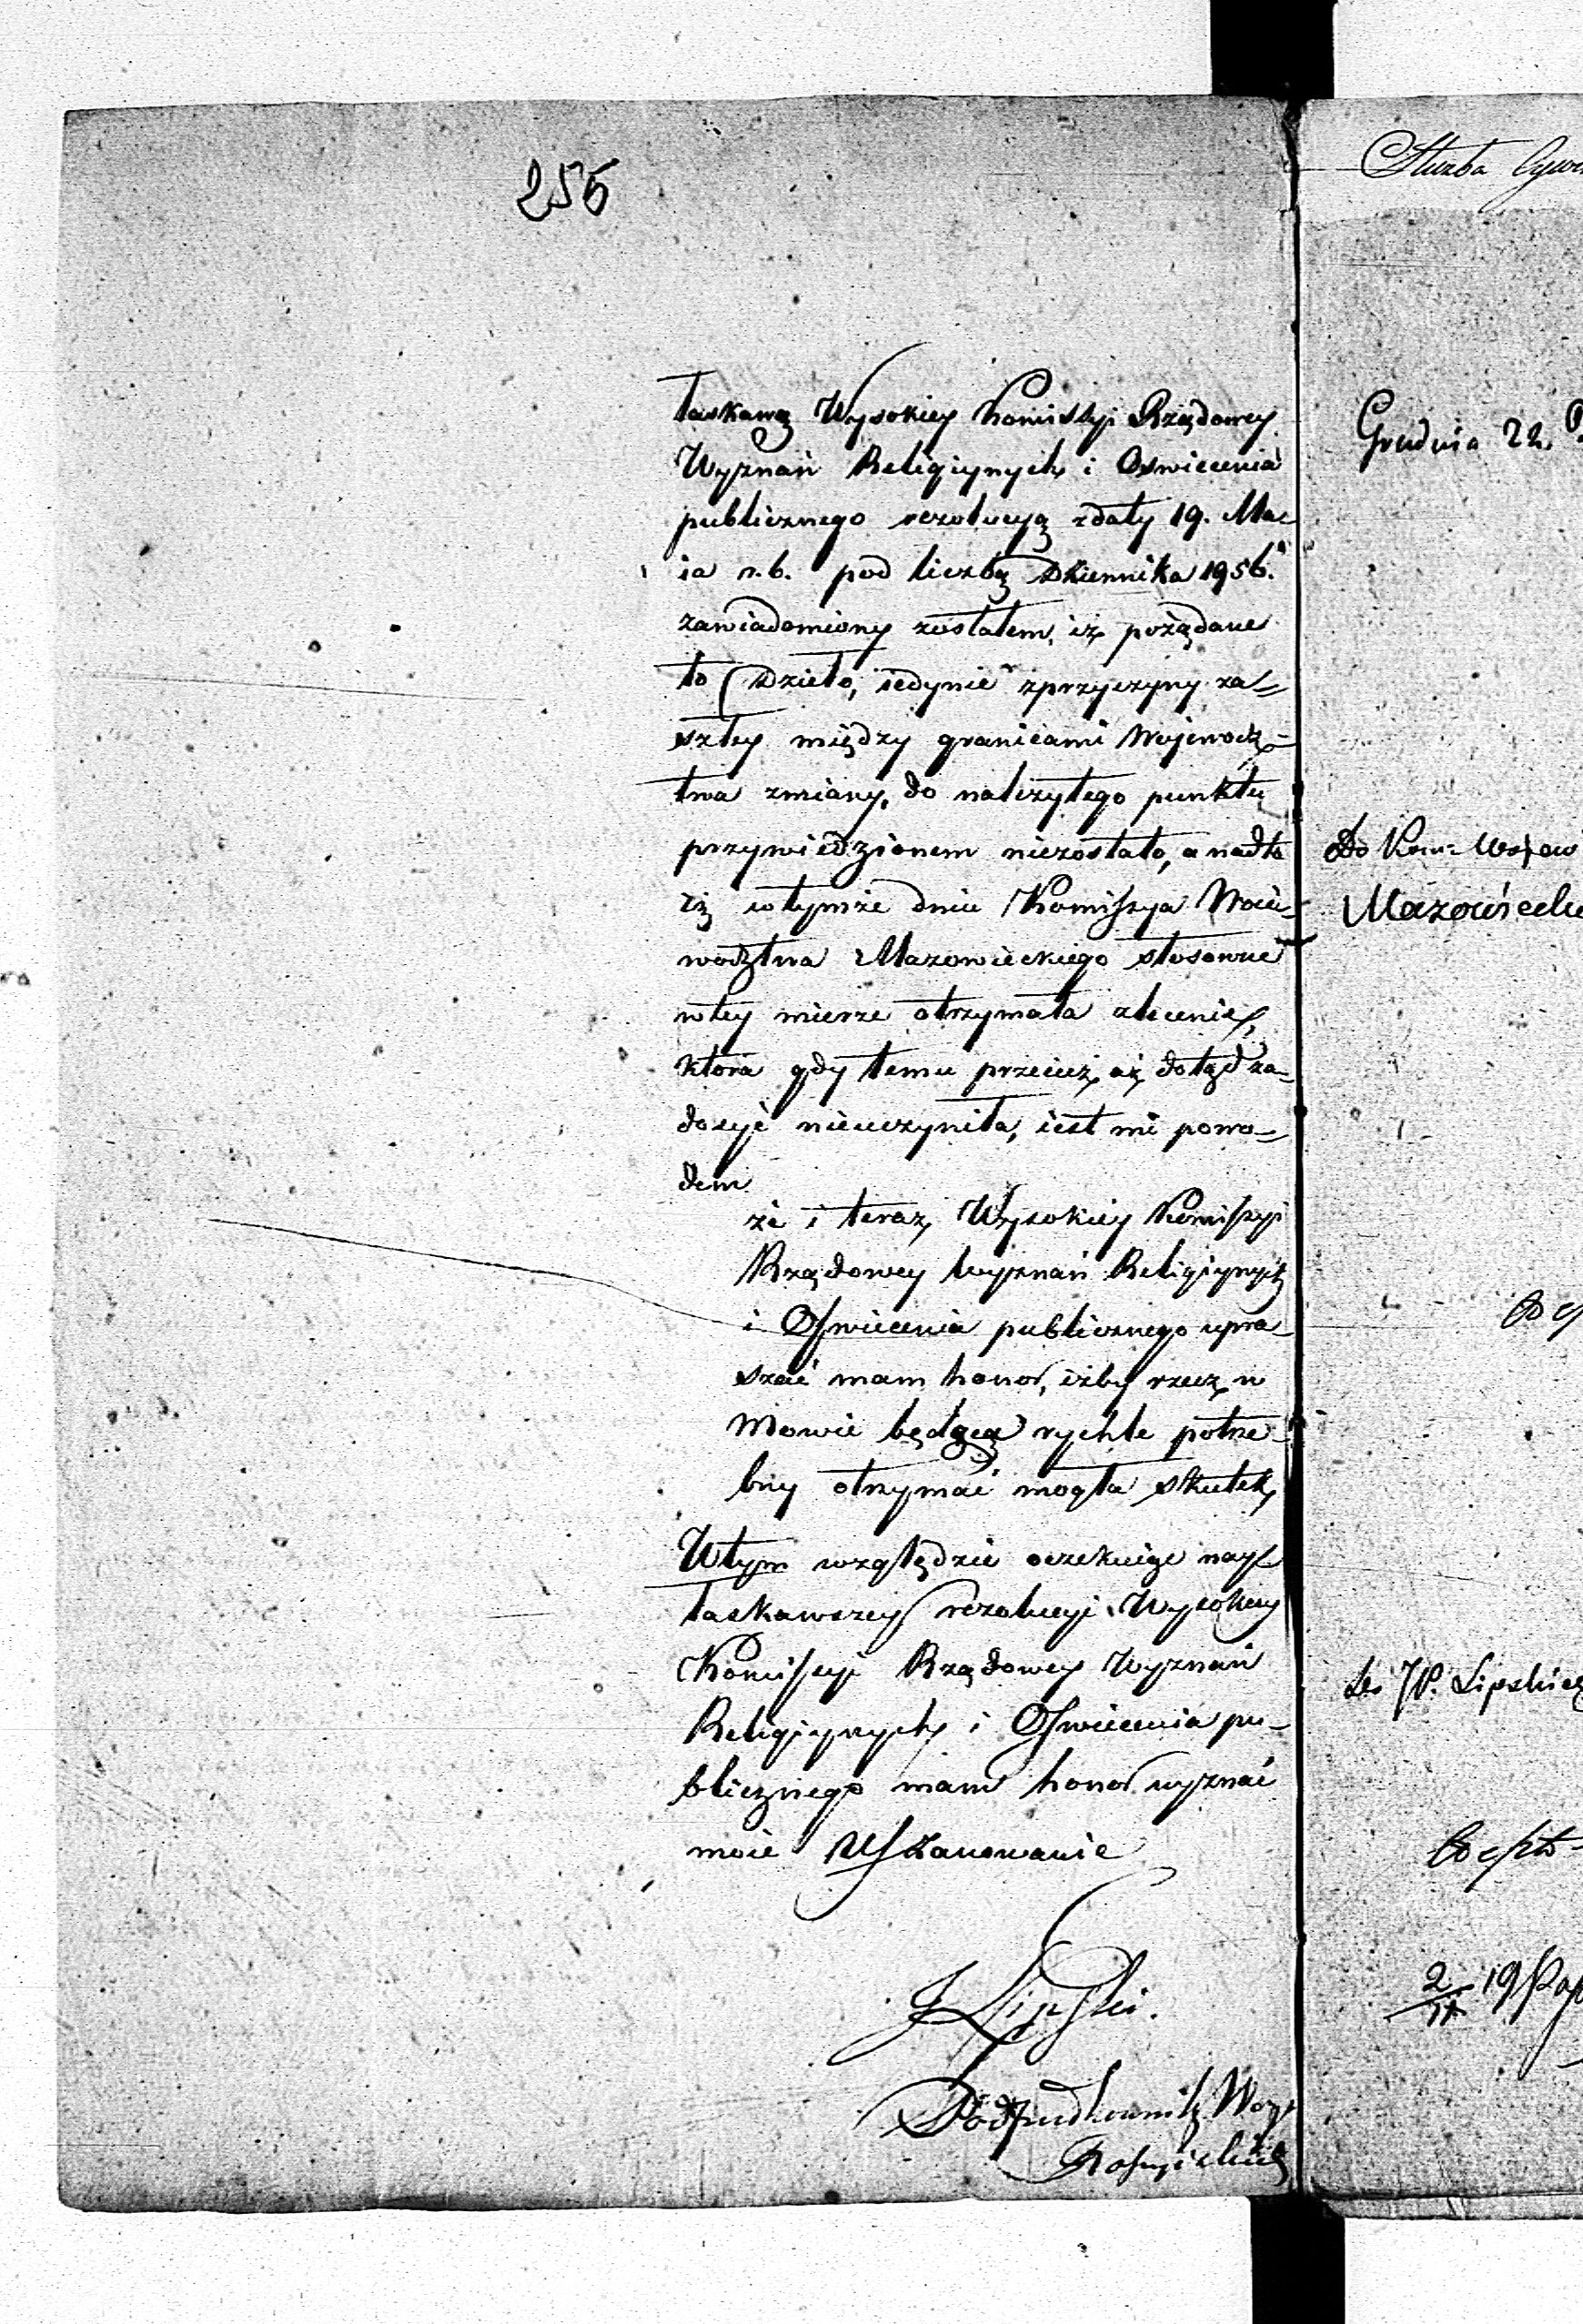 256
łaskawą Wysokiey Komissyi Rządowey
Wyznań Religiynych i Oswiecenia
publicznego rezolucyą zdaty 19. Ma-
ia r.b. pod liczbą Dziennika 1956.
zawiadomiony zostałem, iż pożądane
to Dzieło, iedynie zprzyczyny za=
szłey między granicami Wojewodz-
twa zmiany, do należytego punktu
przywiedzionem niezostało, a nadto
iż wtymże dniu Komissya Woie-
wodztwa Mazowieckiego stosowne
wtey mierze otrzymała zlecenie,
która gdy temu przecież aż dotąd za-
dosyć nieuczyniła, iest mi powo-
dem
że i teraz, Wysokiey Komissyi
Rządowey Wyznań Religiynych
i Oswiecenia publicznego upra-
szać mam honor, iżby rzecz w
Mowie będąca rychle potrze-
bny otrzymać mogła skutek,
Wtym względzie oczekuiąc nay-
łaskawszey rezolucyi Wysokiey
Komissyi Rządowey Wyznań
Religiynych i Oswiecenia pu-
blicznego mam honor wyznać
moie Uszanowanie
J Lipski.
Podpułkownik Woysk
Służba
Grudnia 22.
Do Kom: Wojew
Mazowiecki
Do JP. Lipskieg
2 19